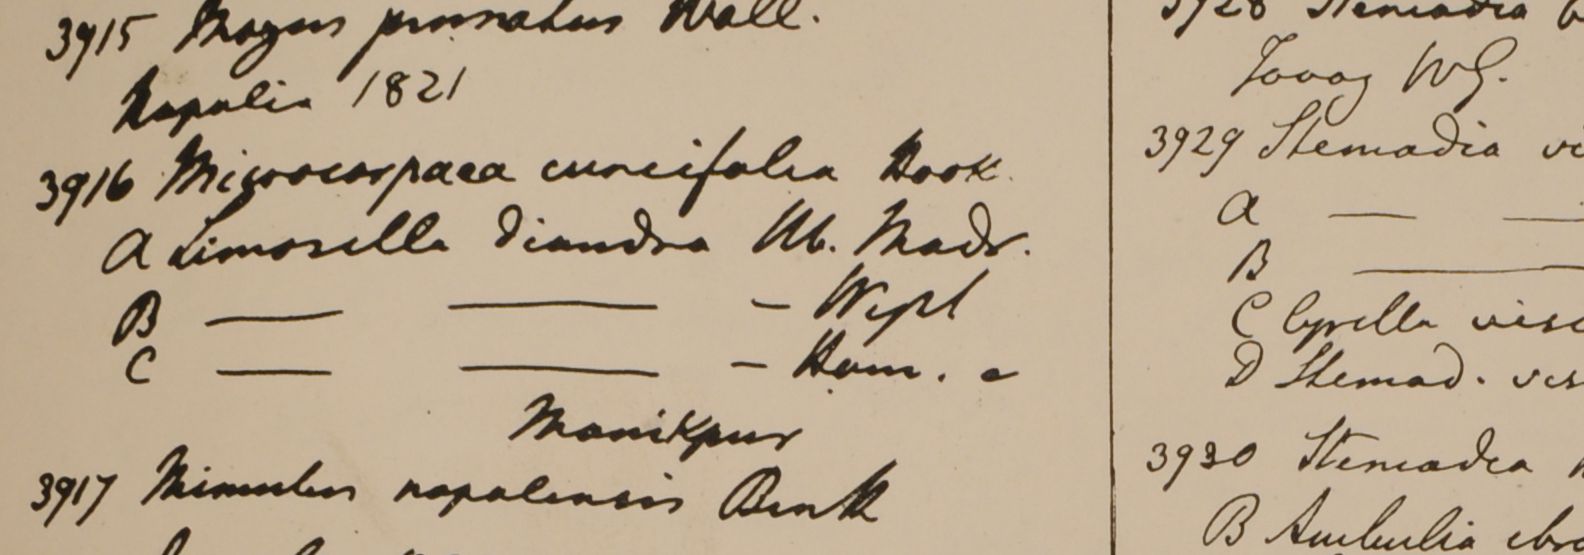 3915 Mazus pumatus Wall.
Napalia 1821
3916 Microcarpaea cuneifolia Hook
A Limosella diandra Hb. Madr.
B — — — Wight
C — — — Ham. e
Manikpur
3917 Mimulus napalensis Benth
3928 Stemodia
Tavoy WG.
3929 Stemodia
A — —
B —
C Cyrilla
D Stemod.
3930 Stemodia
B Ambulia